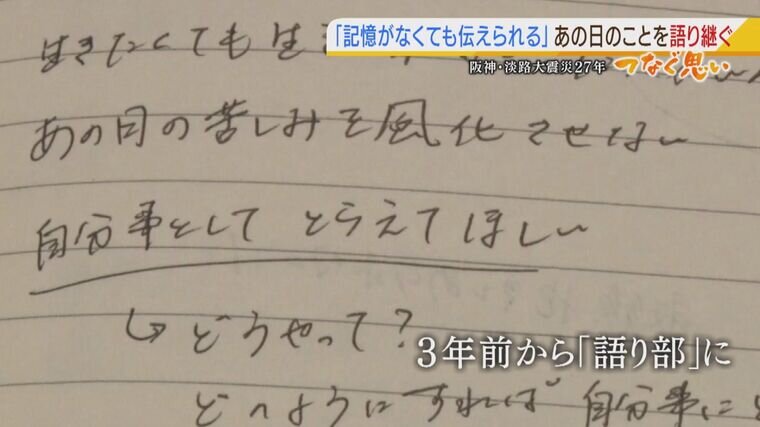 「記憶がなくても伝えられる」あの日のことを語り継ぐ
阪神・淡路大震災27年 つなぐ思い
生きたくても生
あの日の苦しみを風化させない
自分事としてとらえてほしい
↳ どうやって？
3年前から「語り部」に
どのようにすれば 自分事に